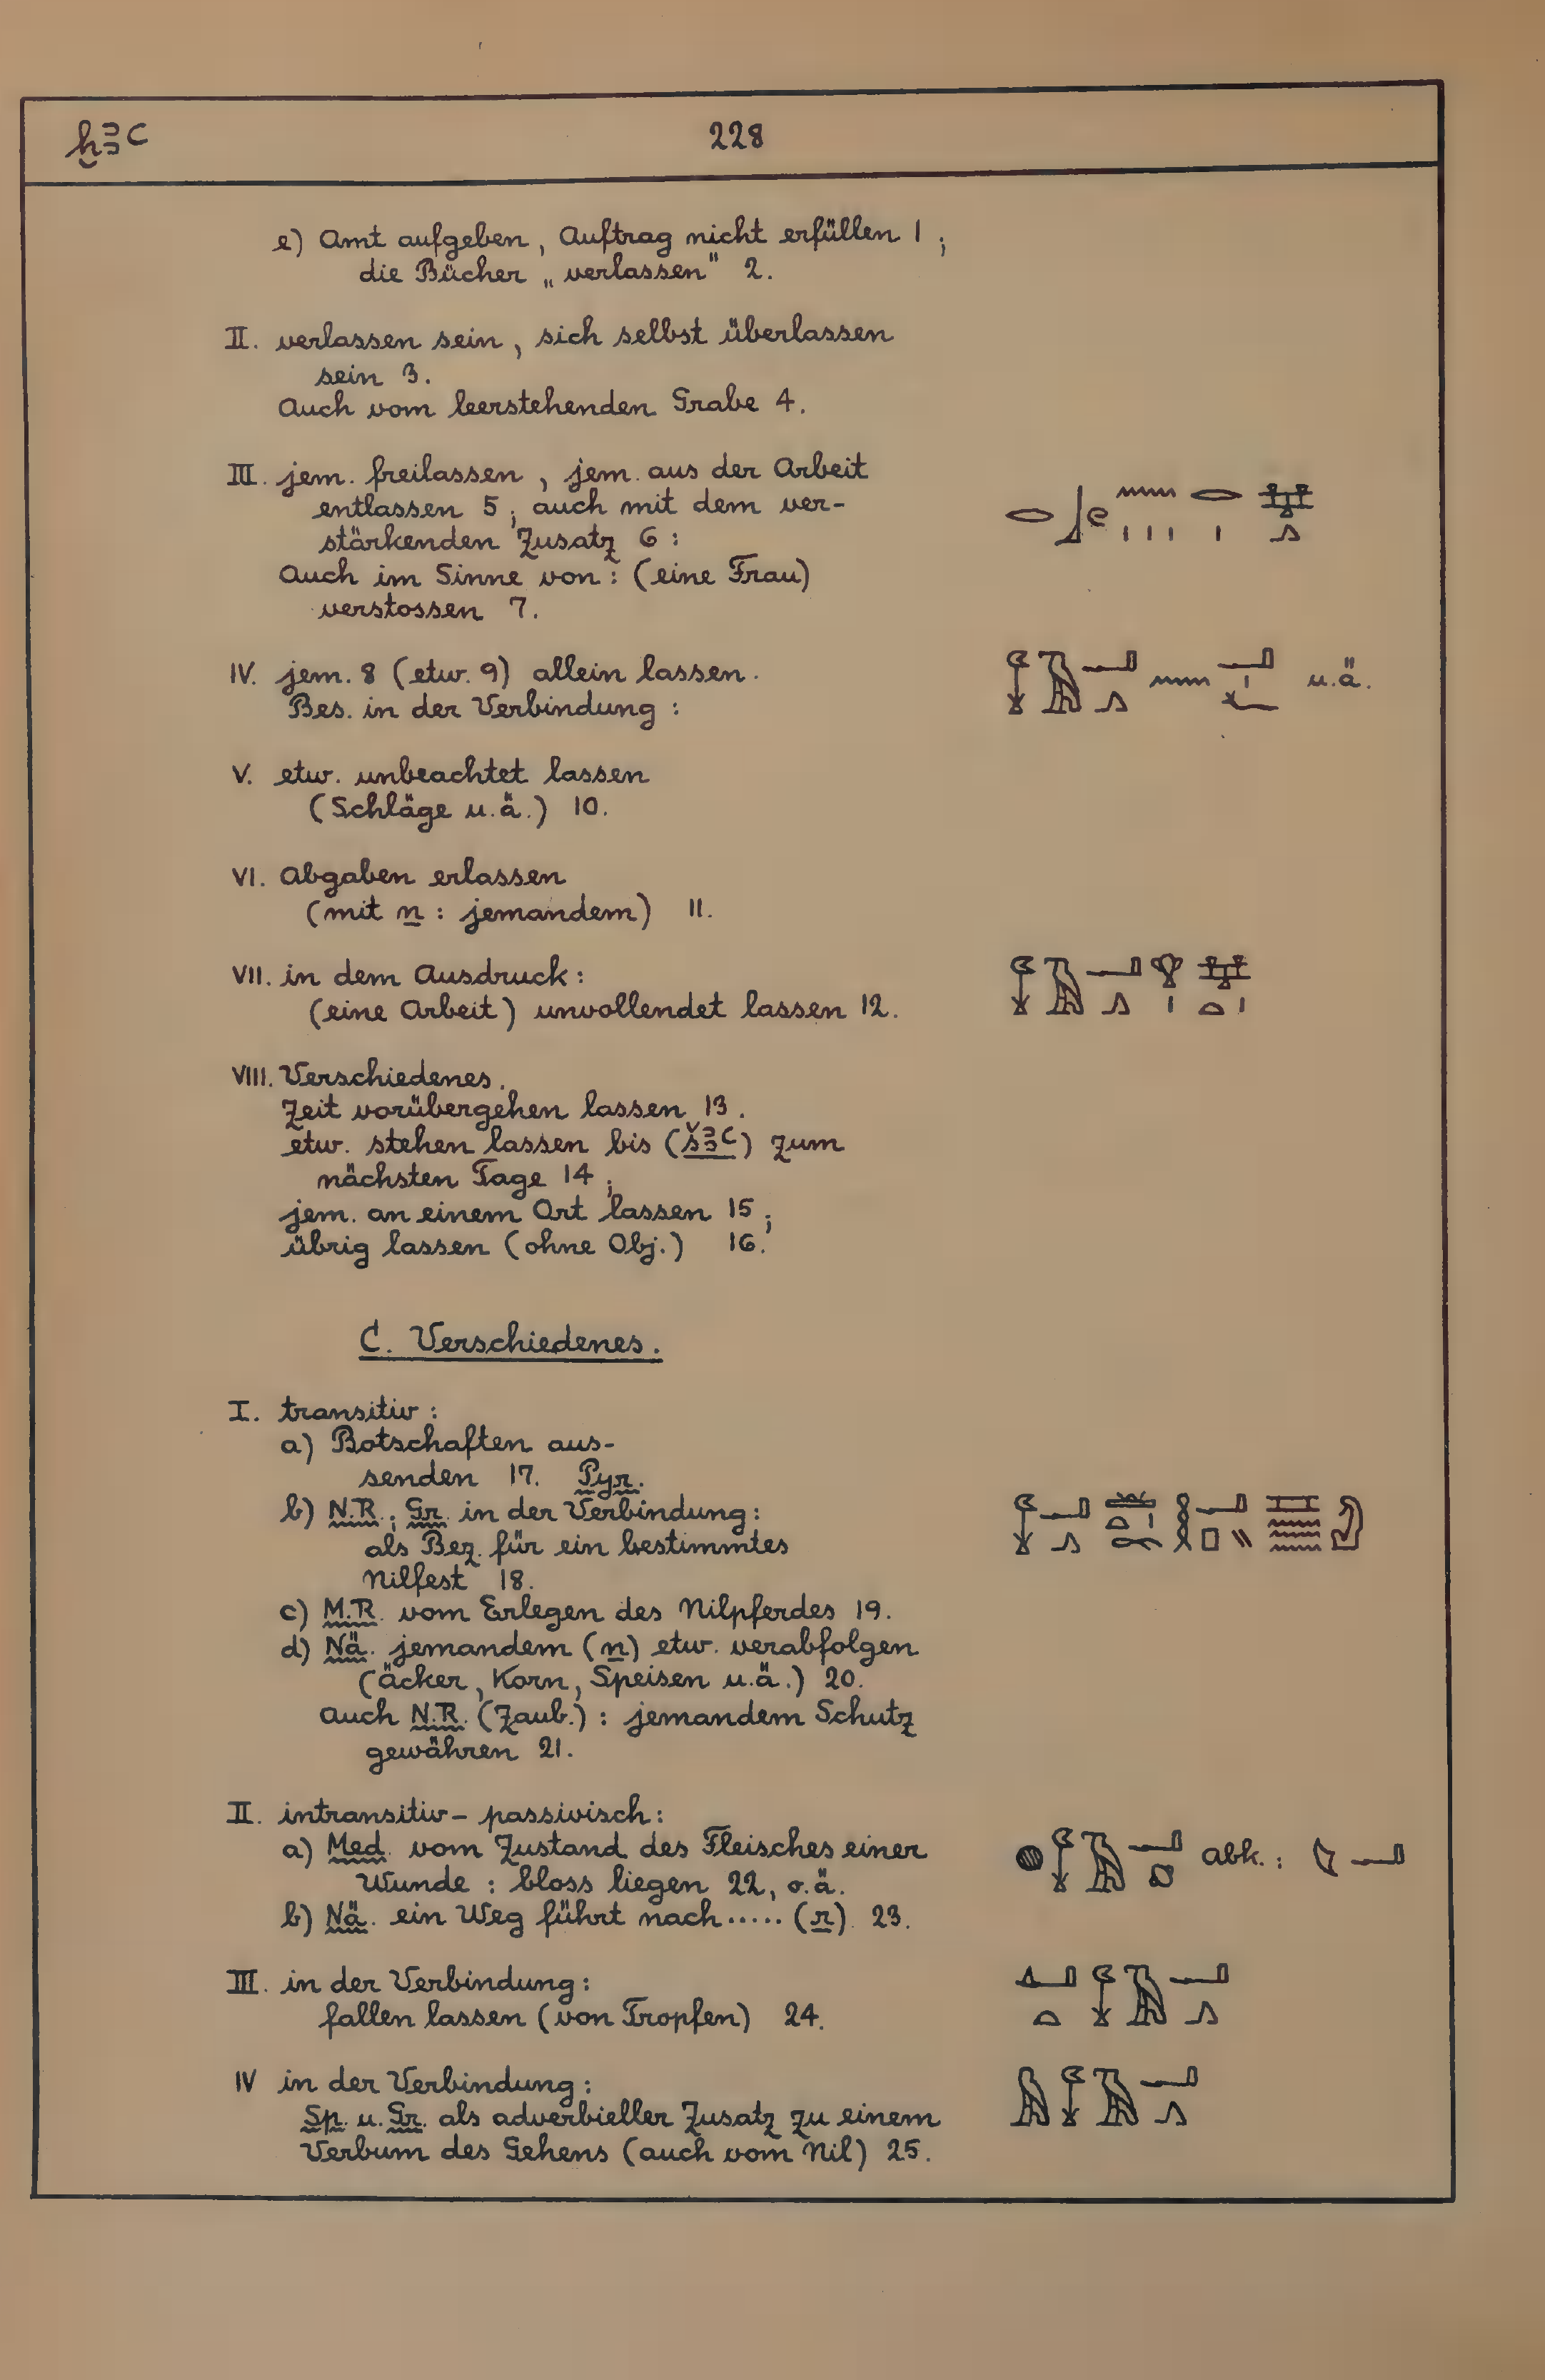 ḫꜣꜥ 228
e) Amt aufgeben, Auftrag nicht erfüllen 1;
die Bücher „verlassen" 2.
II. verlassen sein, sich selbst überlassen
sein 3.
Auch vom leerstehenden Grabe 4.
III. jem. freilassen, jem. aus der Arbeit
entlassen 5; auch mit dem ver-
stärkenden Zusatz 6:
Auch im Sinne von: (eine Frau)
verstossen 7.
IV. jem. 8 (etw. 9) allein lassen.
Bes. in der Verbindung: u.ä.
V. etw. unbeachtet lassen
(Schläge u.ä.) 10.
VI. Abgaben erlassen
(mit n: jemandem) 11.
VII. in dem Ausdruck:
(eine Arbeit) unvollendet lassen 12.
VIII. Verschiedenes.
Zeit vorübergehen lassen 13.
etw. stehen lassen bis (šꜣꜥ) zum
nächsten Tage 14;
jem. an einem Ort lassen 15;
übrig lassen (ohne Obj.) 16.
C. Verschiedenes.
I. transitiv:
a) Botschaften aus-
senden 17. Pyr.
b) N.R.; Gr. in der Verbindung:
als Bez. für ein bestimmtes
Nilfest 18.
c) M.R. vom Erlegen des Nilpferdes 19.
d) Nä. jemandem (n) etw. verabfolgen
(Äcker, Korn, Speisen u.ä.) 20.
auch N.R. (Zaub.): jemandem Schutz
gewähren 21.
II. intransitiv-passivisch:
a) Med. vom Zustand des Fleisches einer abk.:
Wunde: bloss liegen 22, o.ä.
b) Nä. ein Weg führt nach ..... (r) 23.
III. in der Verbindung:
fallen lassen (von Tropfen) 24.
IV in der Verbindung:
Sp. u. Gr. als adverbieller Zusatz zu einem
Verbum des Gehens (auch vom Nil) 25.